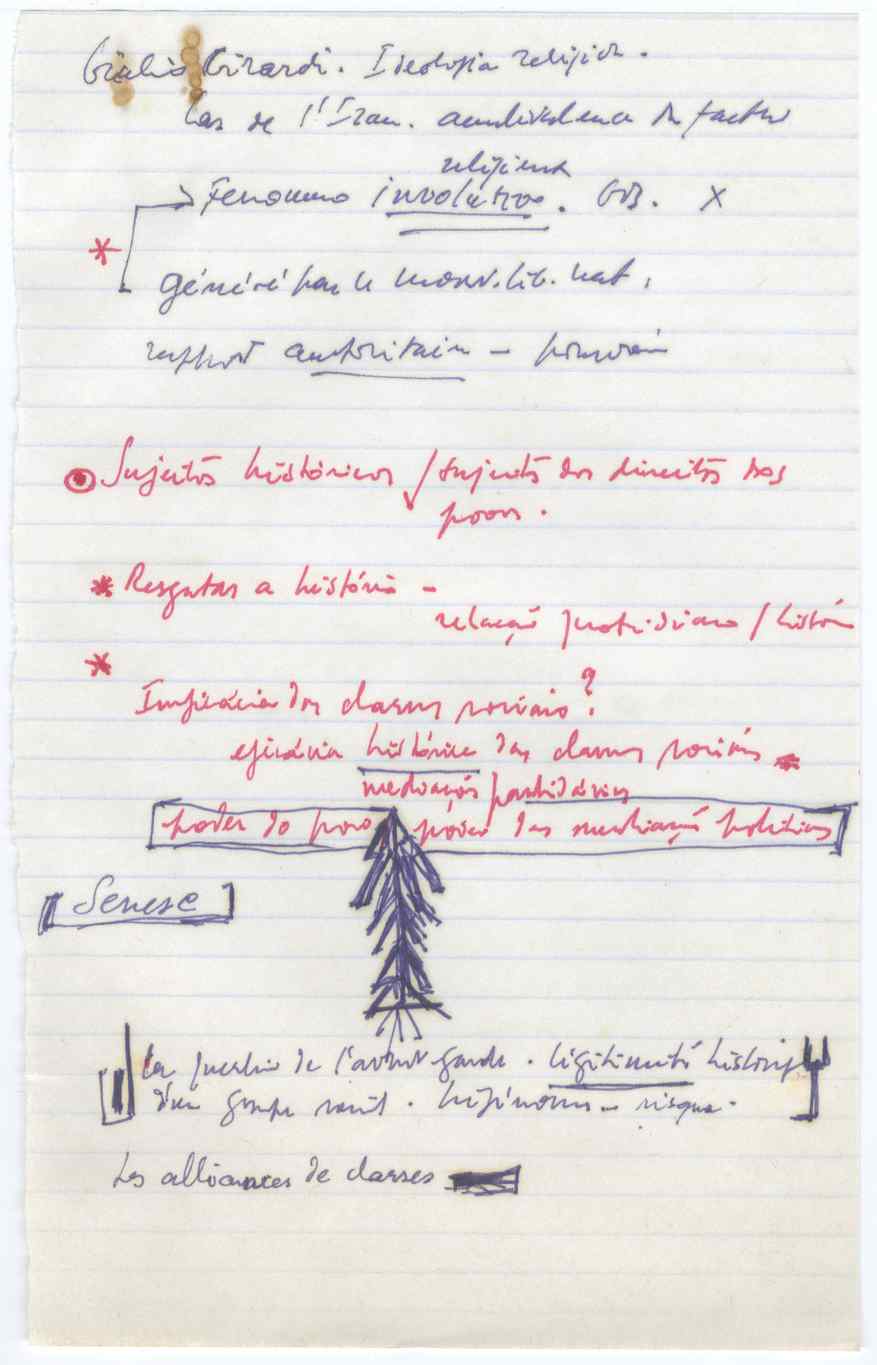 Giulio Girardi. Ideologia religion.
Cas de l'Iran. ambivalence du facteur
religieux
Fenomeno involutivo. X
généré par le mouv. lib. nat.
rapport autoritaire – pouvoir
Sujeitos históricos / sujeitos dos direitos dos
povos.
* Resgatar a história –
relação quotidiano / histó
*
dos classes sociais?
eficácia histórica das classes sociais *
mediações partidárias
poder do povo poder das mediações políticas
[Senese]
La question de l'avant garde. légitimité historique
d'un groupe social. risque.
Les alliances de classes